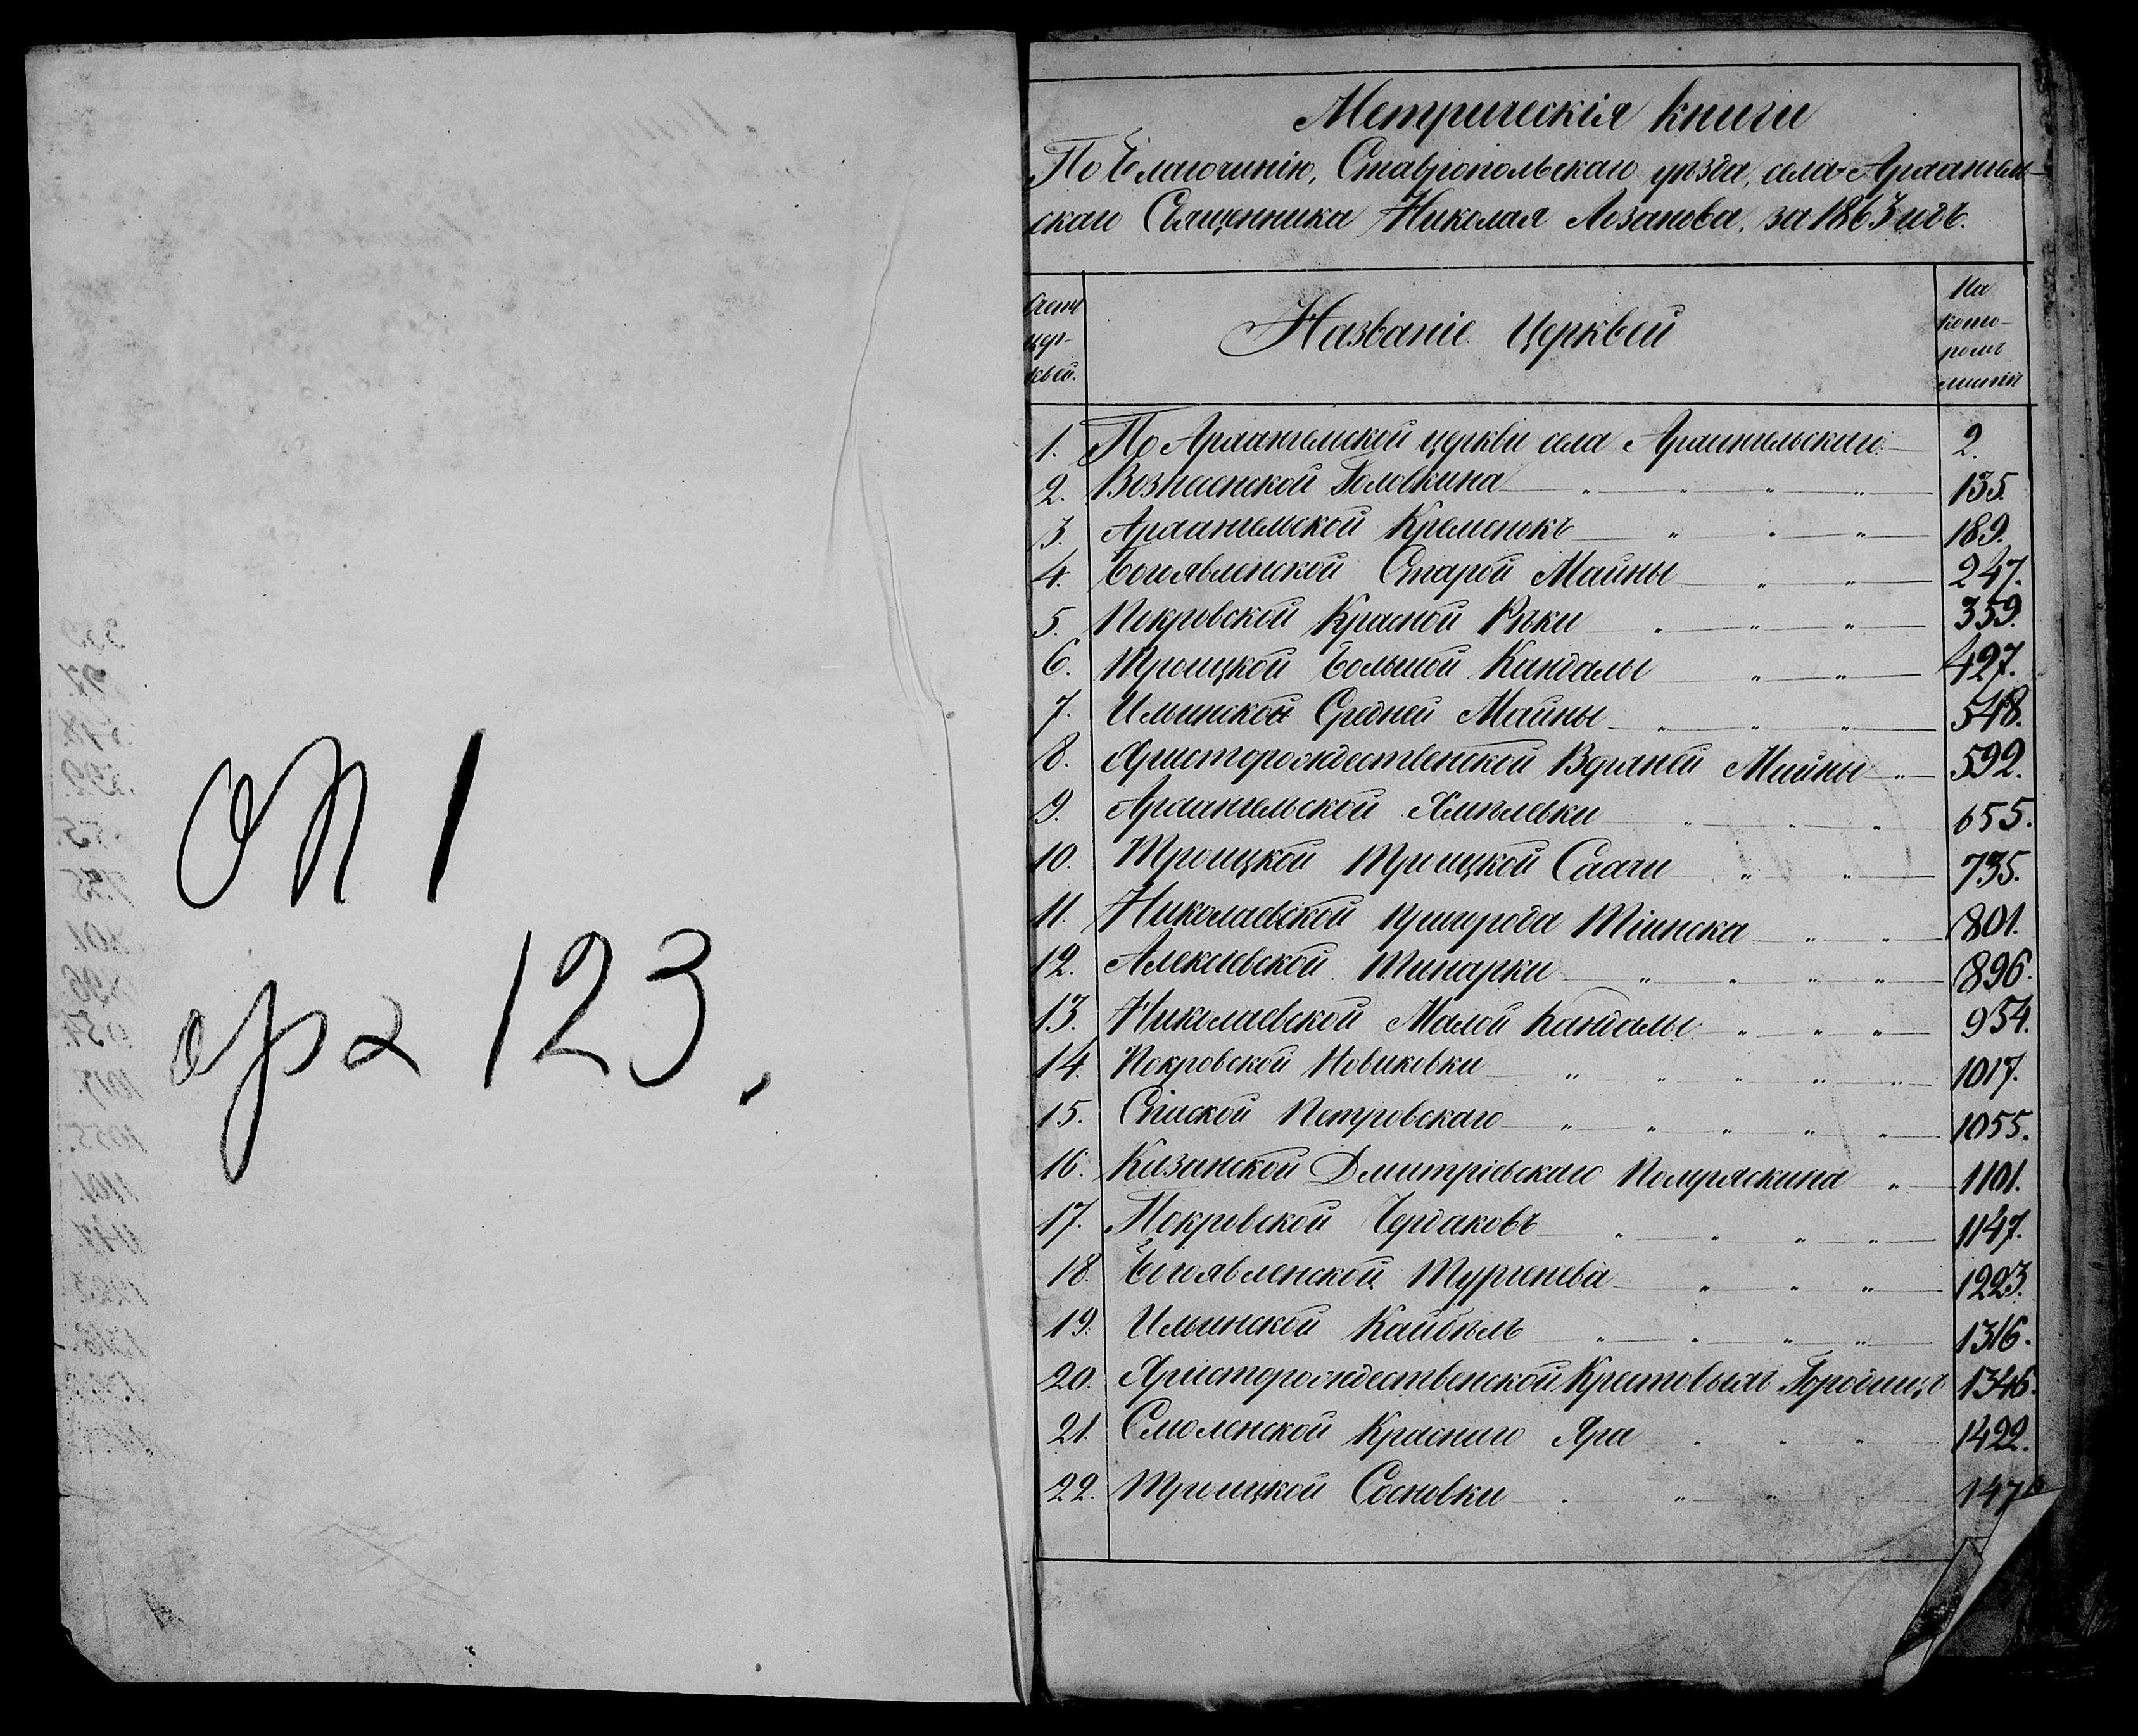 оп 1
арх 123.
Метрическія книги
По Благочинію, Ставропольскаго уѣзда, села Архангель-
скаго Священника Николая Лозанова, за 1863 годъ.
Счетъ
цер-
квей.
Названіе Церквей
На
кото-
ромъ
листѣ
1. По Архангельской церкви села Архангельскаго 2.
2. Вознесенской Головкина „ „ „ „ 135.
3. Архангельской Кременокъ „ „ „ 189.
4. Богоявленской Старой Майны „ „ 247.
5. Покровской Красной Рѣки „ „ „ 359.
6. Троицкой Большой Кандалы „ „ 427.
7. Ильинской Средней Майны „ „ „ 548.
8. Христорождественской Верхней Майны „ 592.
9. Архангельской Хмѣлевки „ „ „ 655.
10. Троицкой Троицкой Сахчи „ „ 735.
11. Николаевской пригорода Тіинска „ „ 801.
12. Алексѣевской Тинарки „ „ „ „ 896.
13. Николаевской Малой Кандалы „ „ „ 954.
14. Покровской Новиковки „ „ „ „ „ 1017.
15. Спаской Петровскаго „ „ „ „ „ 1055.
16. Казанской Дмитріевскаго Помряскина „ 1101.
17. Покровской Чердаковъ „ „ „ „ 1147.
18. Богоявленской Тургенева „ „ „ 1223.
19. Ильинской Кайбѣлъ „ „ „ „ 1316.
20. Христорождественской Крестовыхъ Городищъ 1346.
21. Смоленской Краснаго Яра „ „ „ 1422.
22. Троицкой Сосновки „ „ „